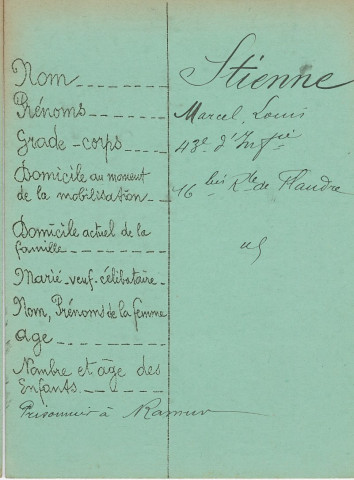 Nom Stienne
Prénoms Marcel, Louis
Grade-corps 43e d'Infie
Domicile au moment
de la mobilisation 16 bis Rte de Flandre
Domicile actuel de la
famille
Marié-veuf-célibataire
Nom, Prénoms de la femme
age
Nombre et âge des
Enfants
Prisonnier à